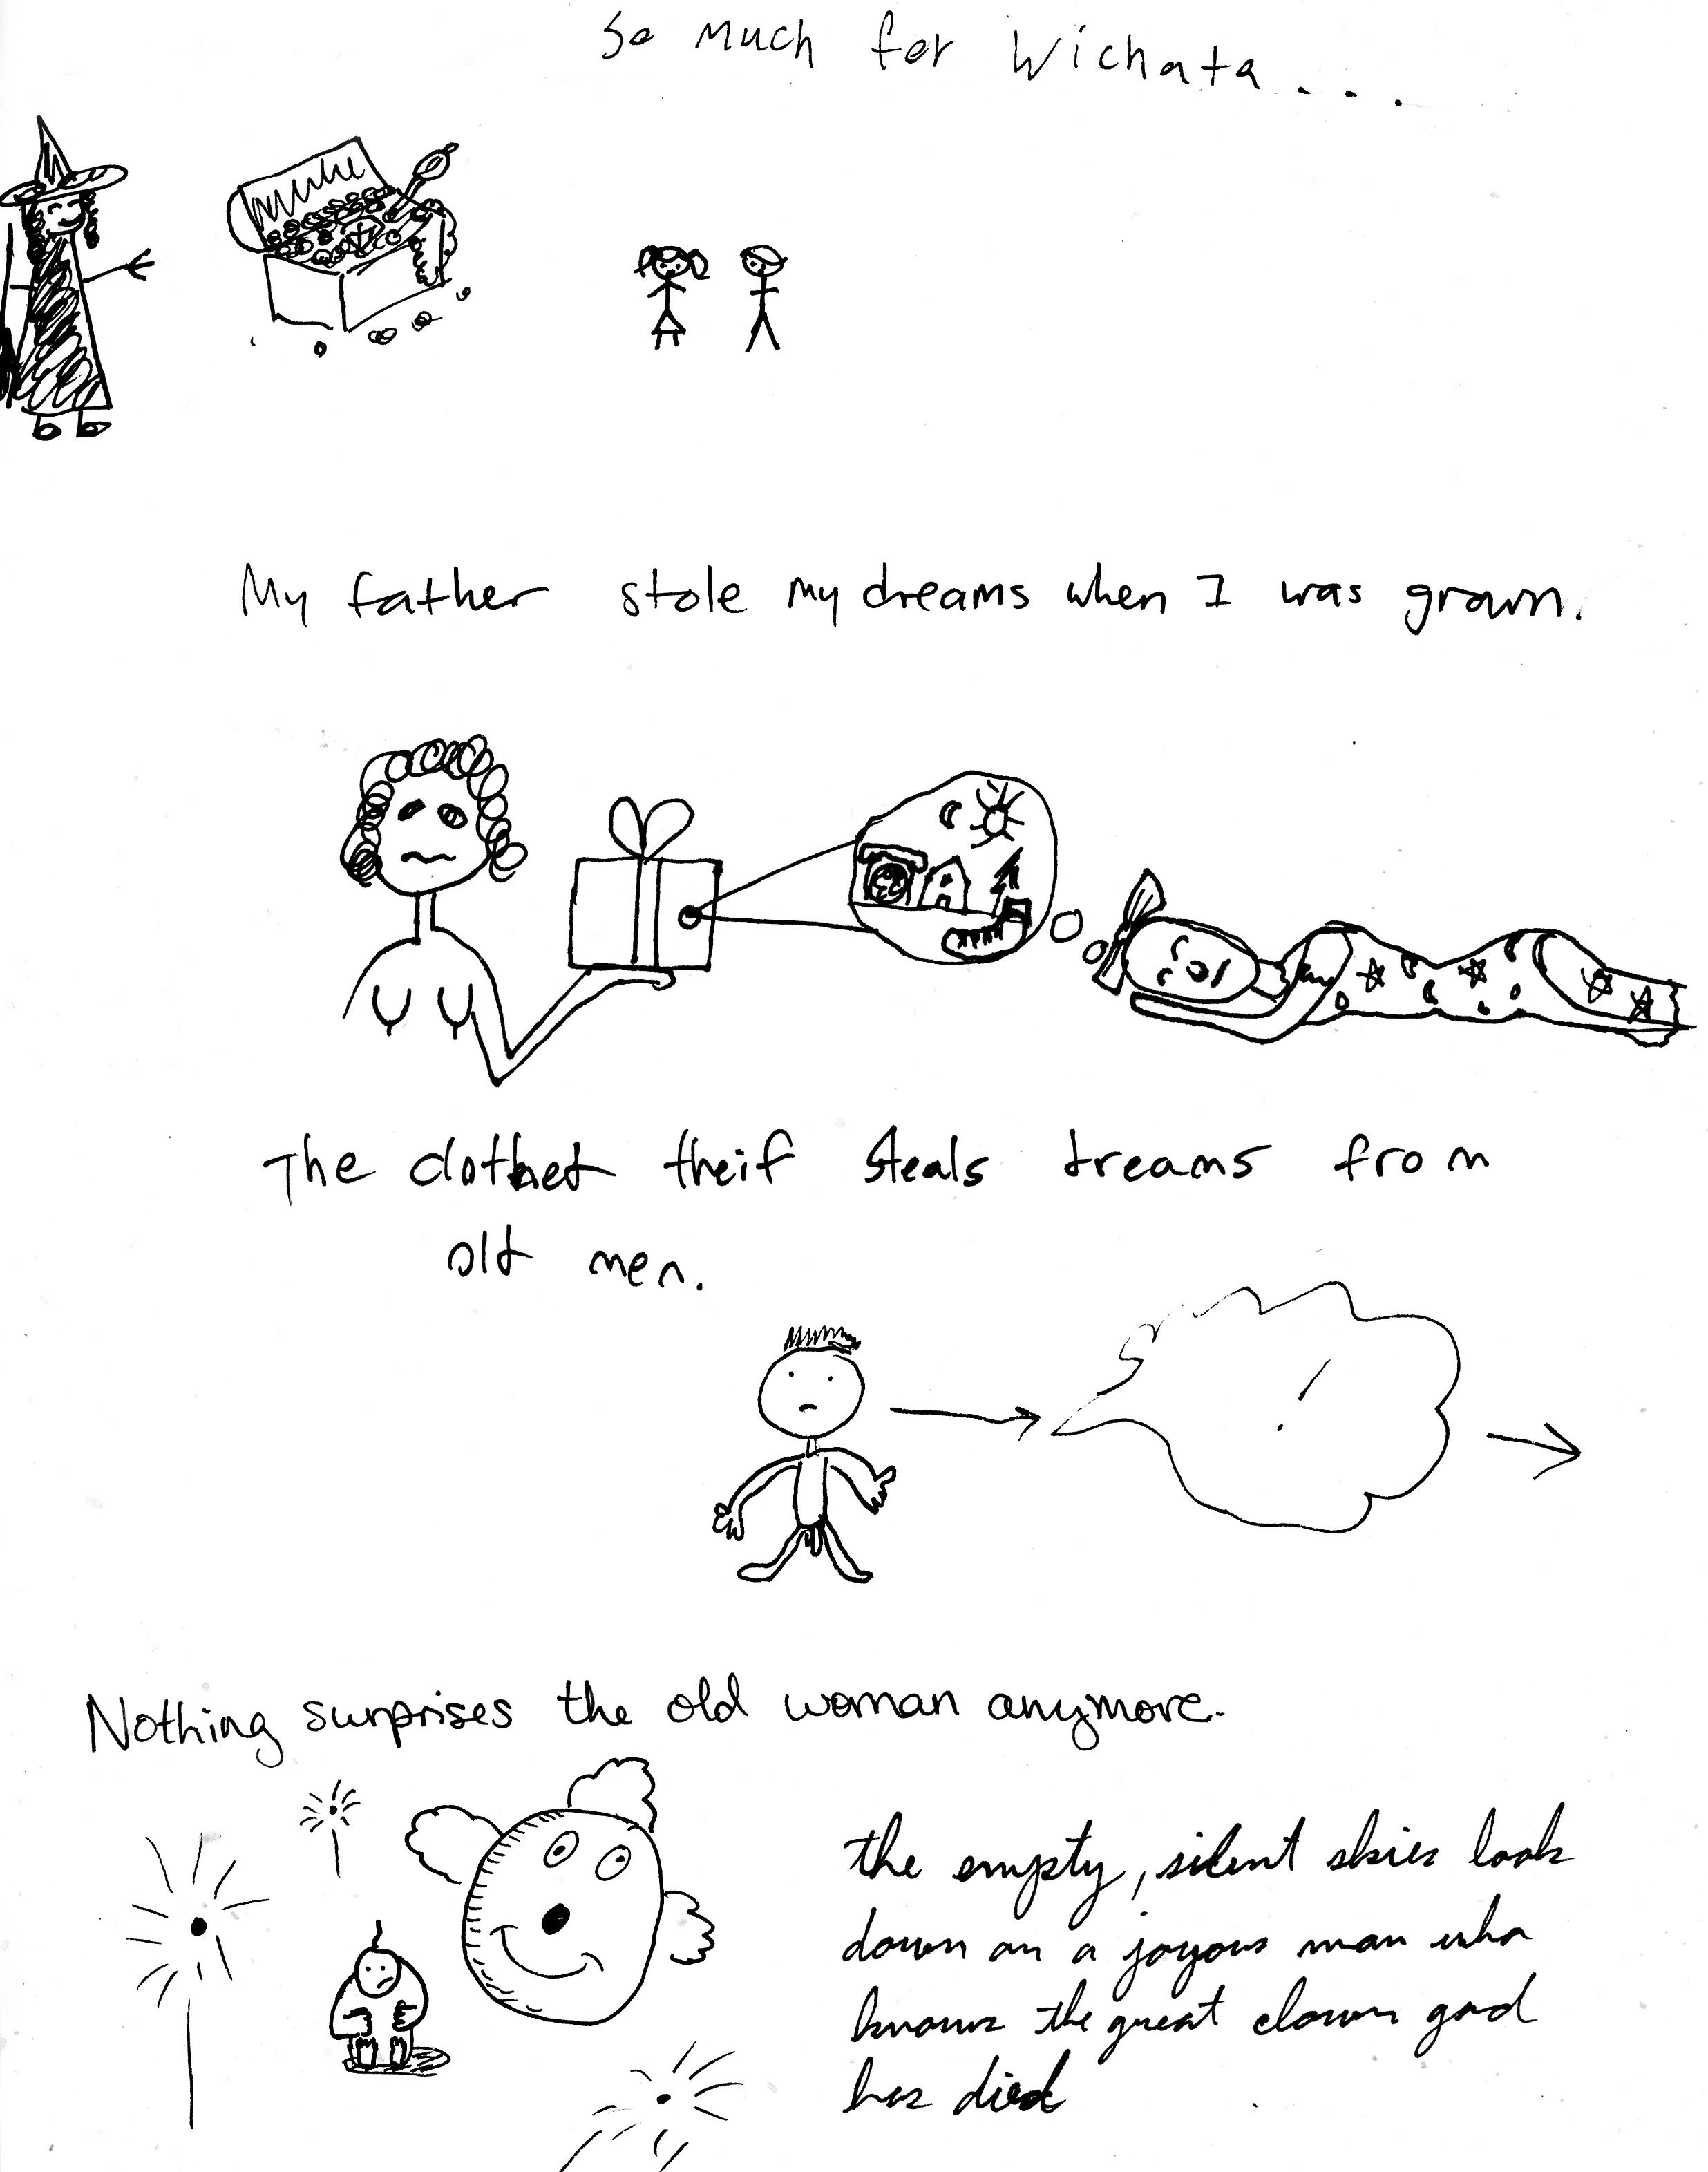 So much for Wichata....
My father stole my dreams when I was grown.
The clothet theif steals treams from
olt men.
!
Nothing surprises the old woman anymore.
the empty, silent skies look
down on a joyous man who
knows the great clown god
has died